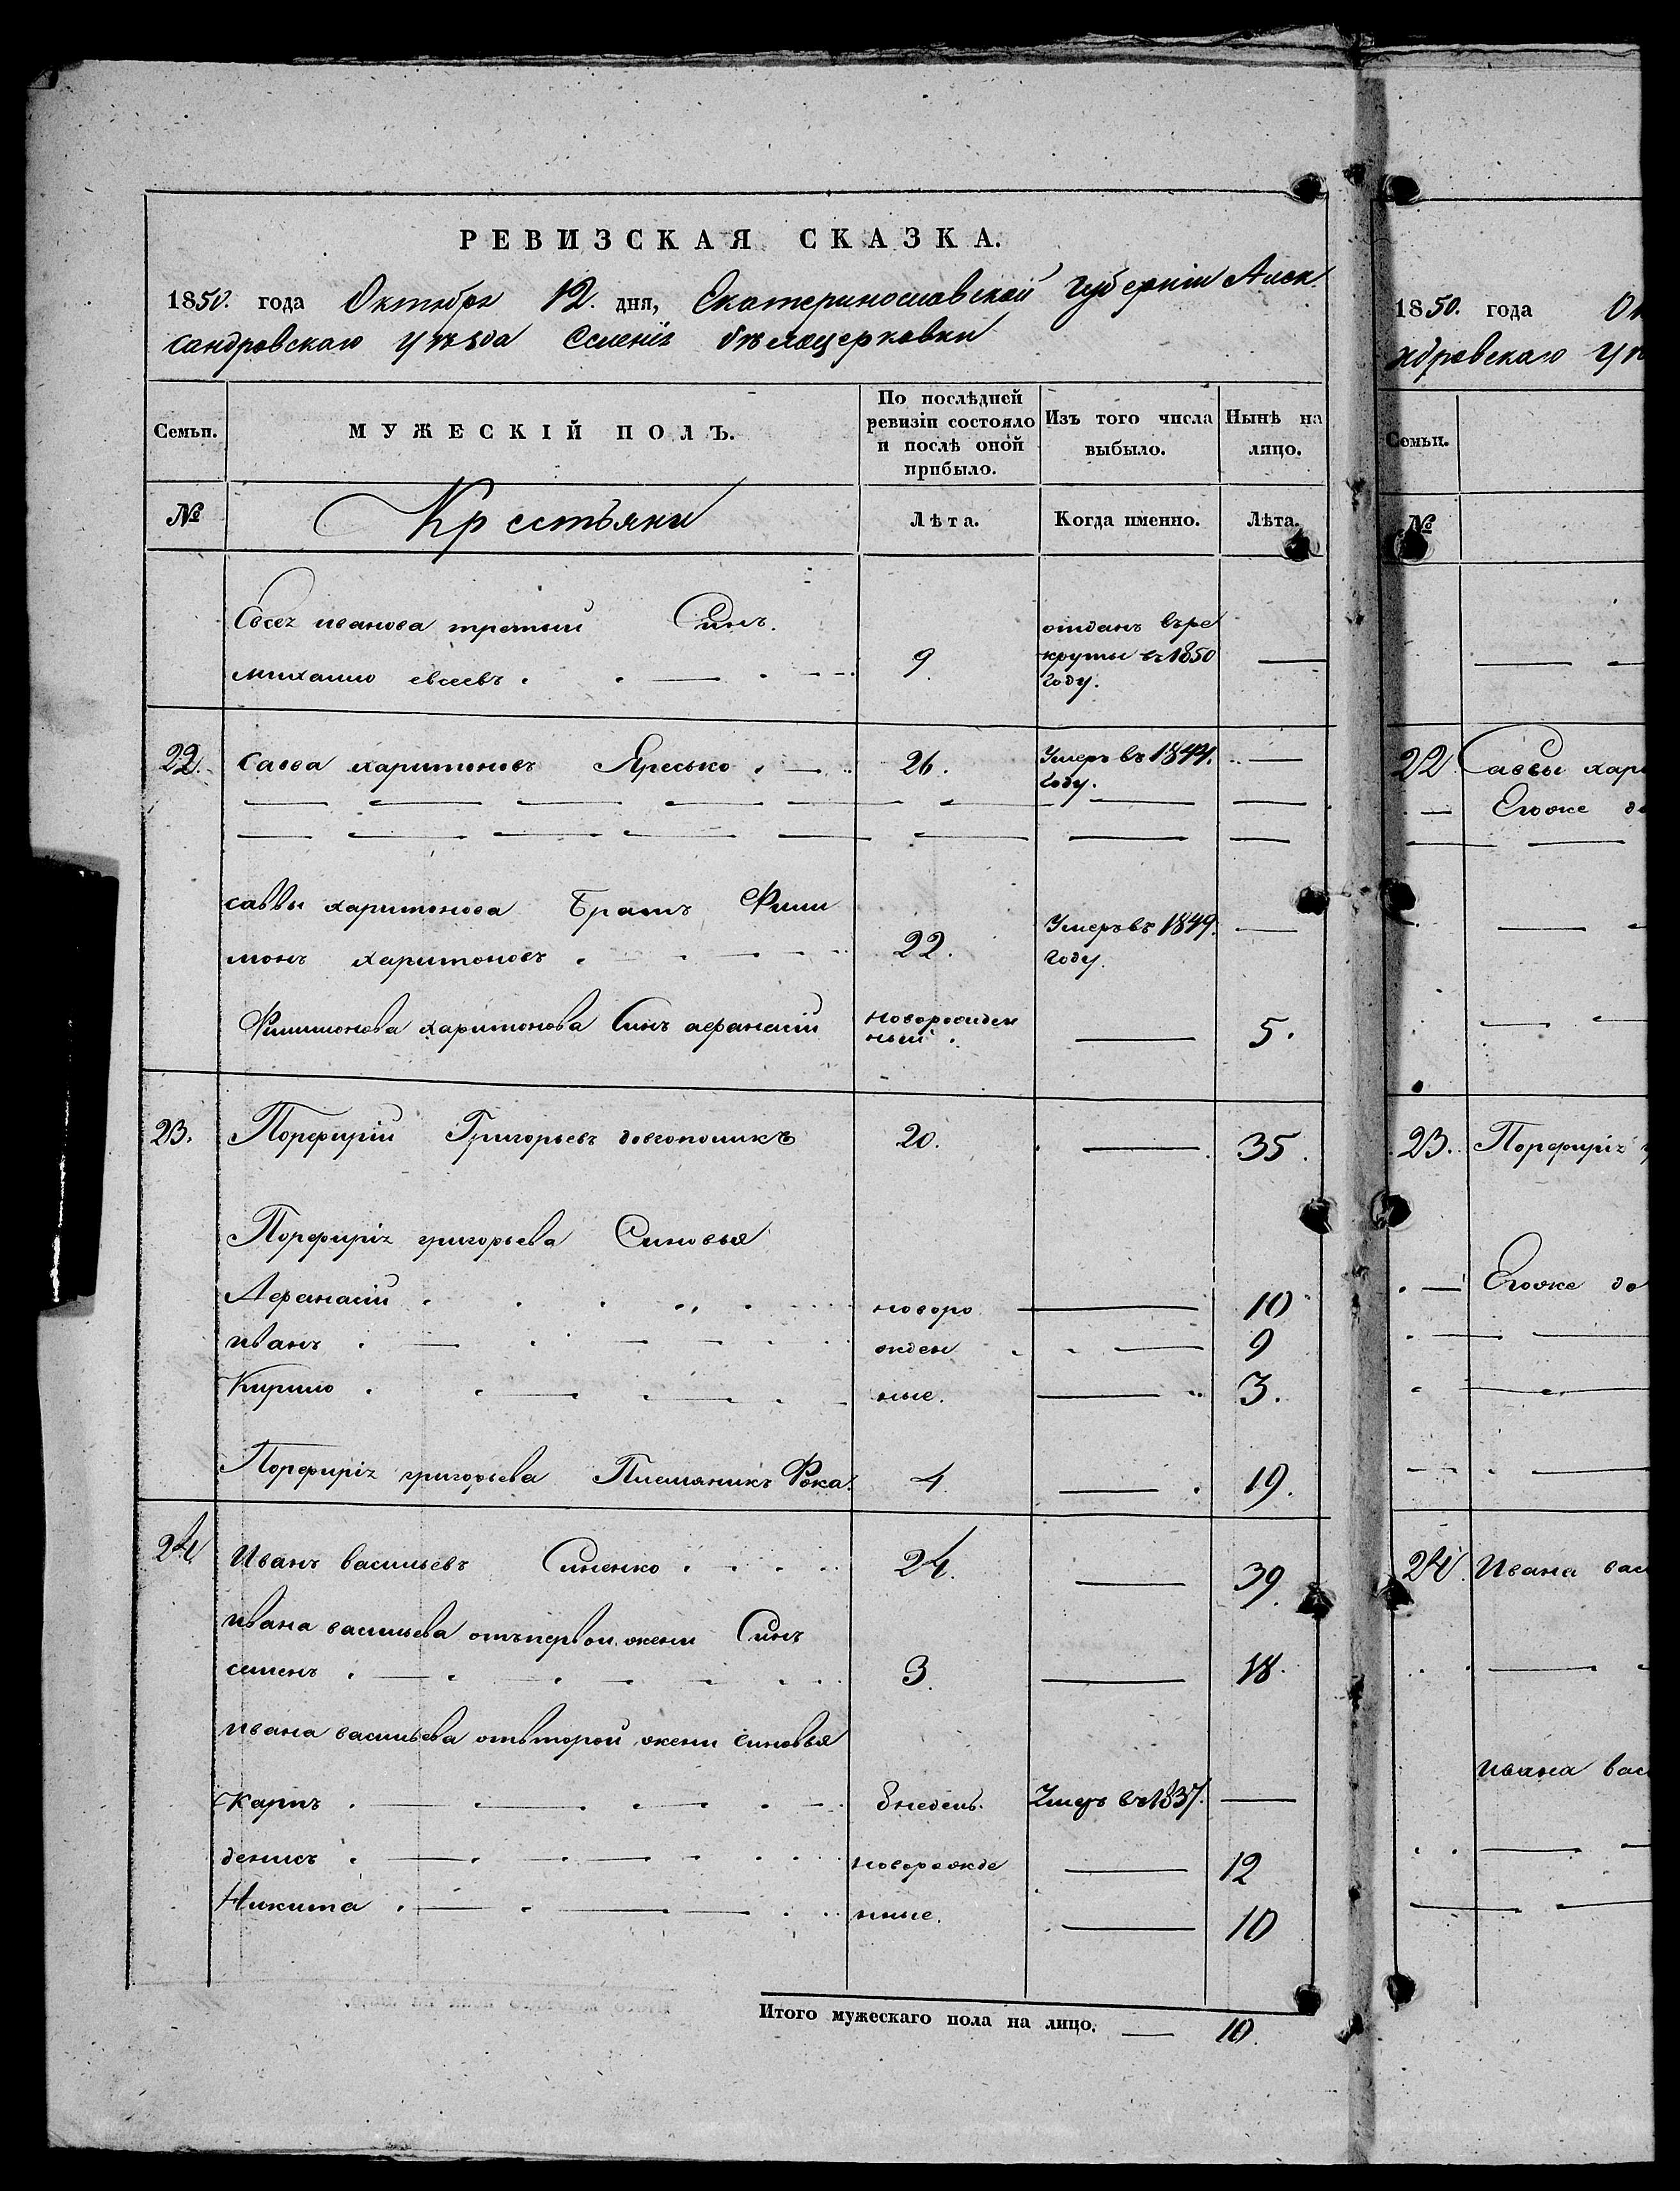 РЕВИЗСКАЯ СКАЗКА.
1850. года Октября 12. дня, Екатеринославской Губерніи Алек
сандровскаго уѣзда Селенія бѣлоцерковки
Семьи. МУЖЕСКІЙ ПОЛЪ. По послѣдней ревизіи состояло и послѣ оной прибыло. Изъ того числа выбыло. Нынѣ на лицо.
№ Крестьяни Лѣта. Когда именно. Лѣта.
Евсея иванова третьий Синъ. отданъ въре
михаило евсеевъ. 9. круты въ 1850 —
году.
22. савва харитоновъ Яресько. 26. Умеръ въ 1844. —
году.
саввы харитонова Братъ Фили
монъ харитоновъ. 22. Умеръ въ 1849. —
году.
Филимонова харитонова Синъ афанасій новорожден — 5.
ный.
23. Порфирій Григорьевъ довгополикъ 20. — 35.
Порфирія григорьева Синовья
Афанасій новоро — 10
иванъ жден — 9
Кирило ные. — 3.
Порфирія григорьева Племяникъ Фока. 4. — 19.
24. Иванъ васильевъ Синенко 24. — 39.
ивана васильева отъпервой жени Синъ
семенъ 3. — 18.
ивана васильева отвторой жени синовья
Карпъ 8недель. Умеръ въ1837. —
денисъ новорожде — 12
Никита нные. — 10
Итого мужескаго пола на лицо. — 10.
1850. года Ок
ндровскаго уѣ
Семьи.
№
22. Саввы хари
Егоже до
23. Порфирія
Егоже до
24. Ивана вас
ивана вас